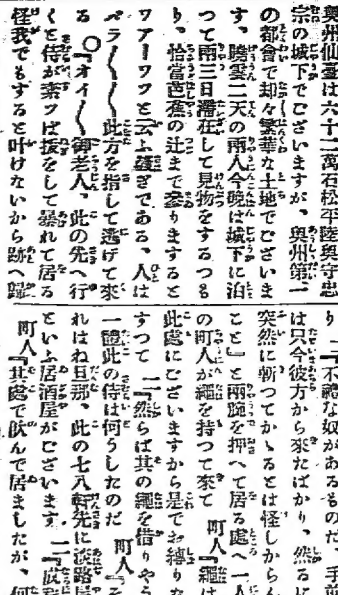 奧州仙臺は六十二萬石松平陸奥守忠
宗の城下でございますが、奥州第一
の都會で却々繁華な土地でございま
す、曉雲二天の兩人今晩は城下に泊
つて兩三日滯在して見物をするつも
り、恰當芭蕉の辻まで參りますると
ワアーワツと云ふ騷ぎである、人は
バラ〱〱此方を指して逃げて來
る。○『オイ〱御老人、此の先へ行
くと侍が索ツぱ拔をして暴れて居る
怪我でもすると叶けないから跡へ歸
り 二『不禮な奴があるものだ、手前
は只今彼方から來たばかり、然るに
突然に斬つてかゝるとは怪しからん
こと』と兩腕を押へて居る處へ一人
の町人が繩を持つて來て 町人『繩は
此處にございますから是でお縛りな
すつて 二『然らば其の繩を借りやう
一體此の侍は何うしたのだ 町人『そ
れはね旦那、此の七八軒先に淡路屋
といふ居酒屋がございます。二『成程
町人『其處で飮んで居ましたが、何